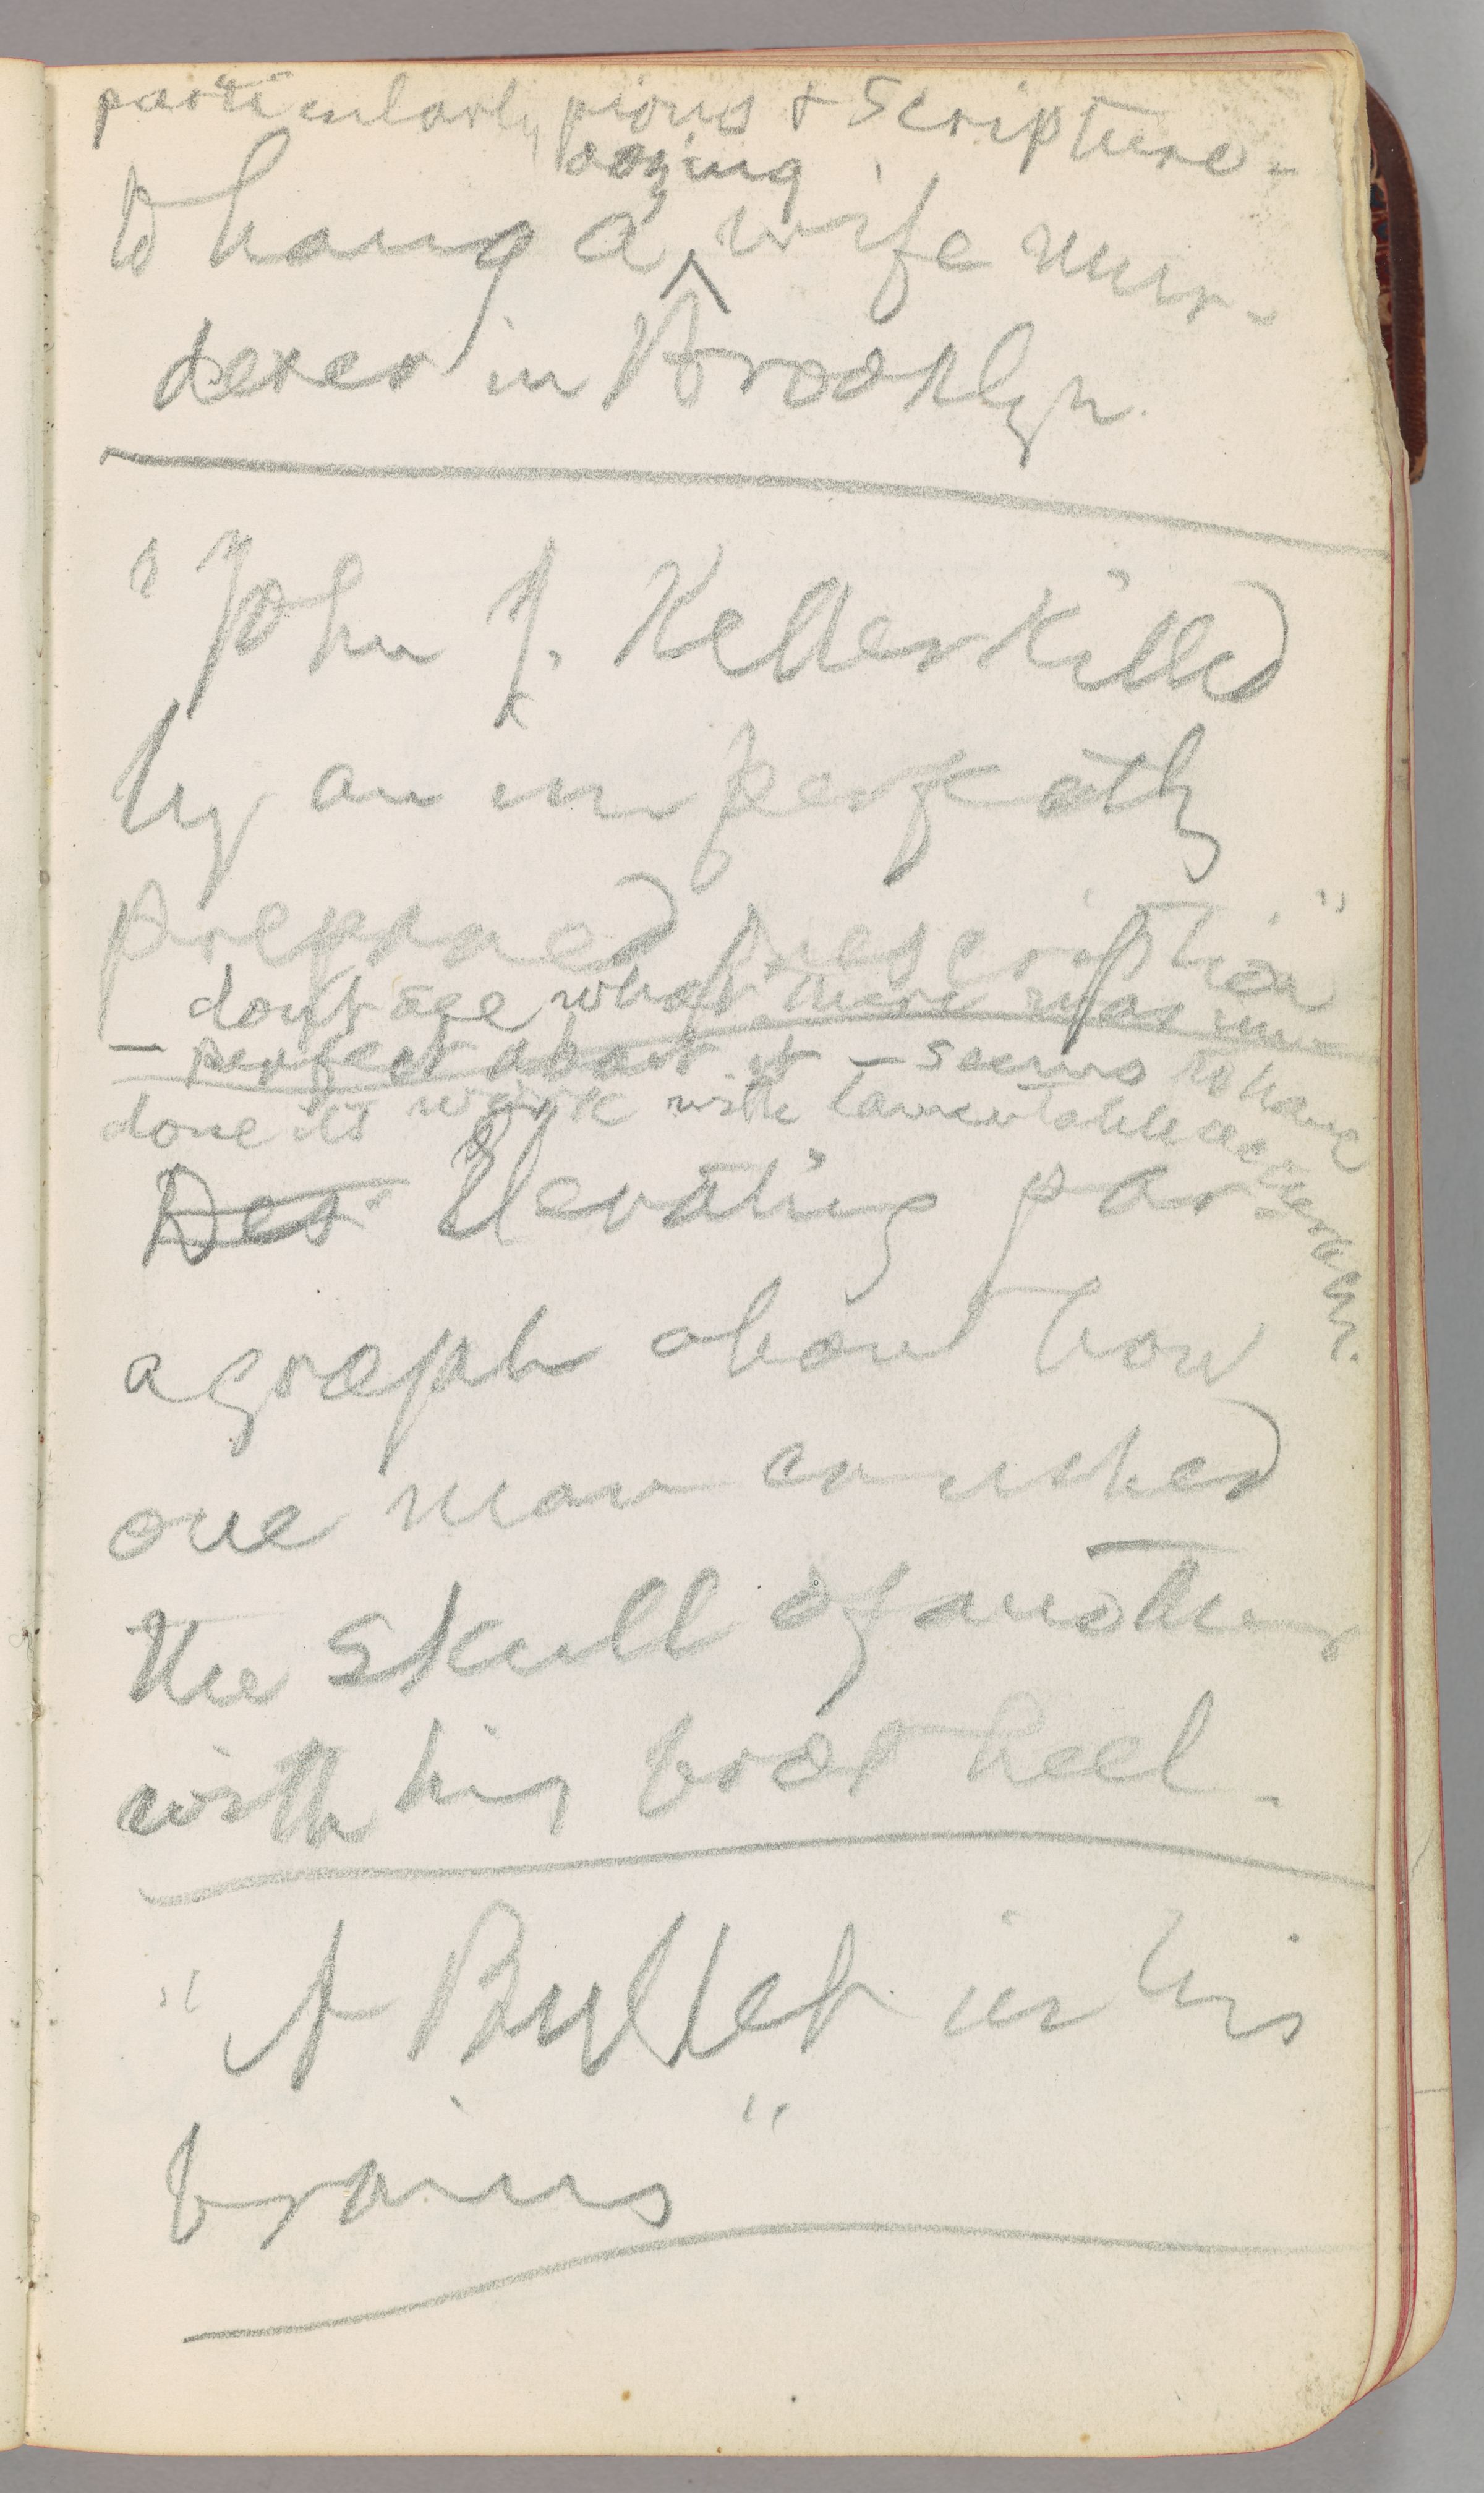 particularly pious & Scripture-
oozing
to hang a ^ wife mur-
derer in Brooklyn.
"John J. Keller killed
by an imperfectly
prepared prescription"
— don't see what there was im-
perfect about it — seems to have
done its work with lamentable certainty.
Des Elevating par
agraph about how
one man crushed
the skull of another
with his boot heel.
"A Bullet in his
brains"